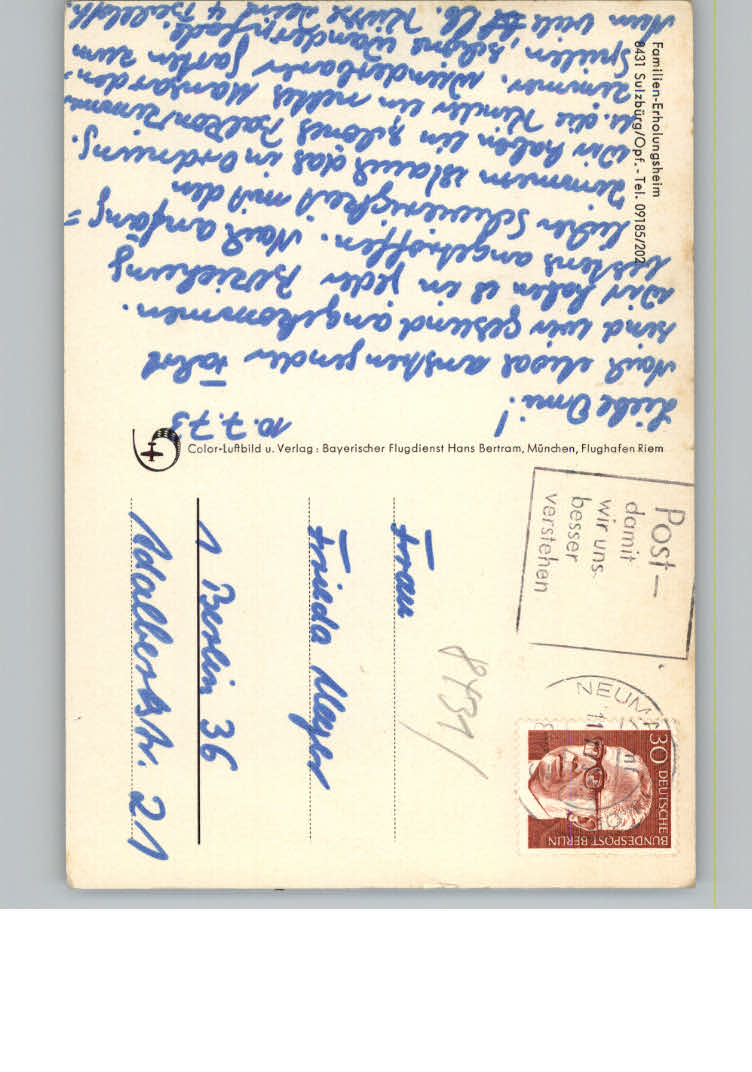 Familien-Erholungsheim
8431 Sulzbürg/Opf. - Tel. 09185/202
10.7.73
Liebe Omi!
Nach etwas anstrengender Fahrt
sind wir gesund angekommen.
Wir haben es in jeder Beziehung
bestens angetroffen. Nach anfäng=
licher Schwierigkeit mit den
Zimmern ist auch das in Ordnung.
Wir haben ein schönes Balkonzimmer
u. die Kinder ein nettes Mansarden=
zimmer. Wunderbarer Garten zum
Spielen, schöne Wanderpfade.
Nun viele lb. Küsse Deine 4
Color-Luftbild u. Verlag: Bayerischer Flugdienst Hans Bertram, München, Flughafen Riem
Post-
damit
wir uns
besser
verstehen
NEUM
11
30
DEUTSCHE
BUNDESPOST BERLIN
8431/
Frau
Frieda Meyer
1 Berlin 36
Adalbertstr. 21